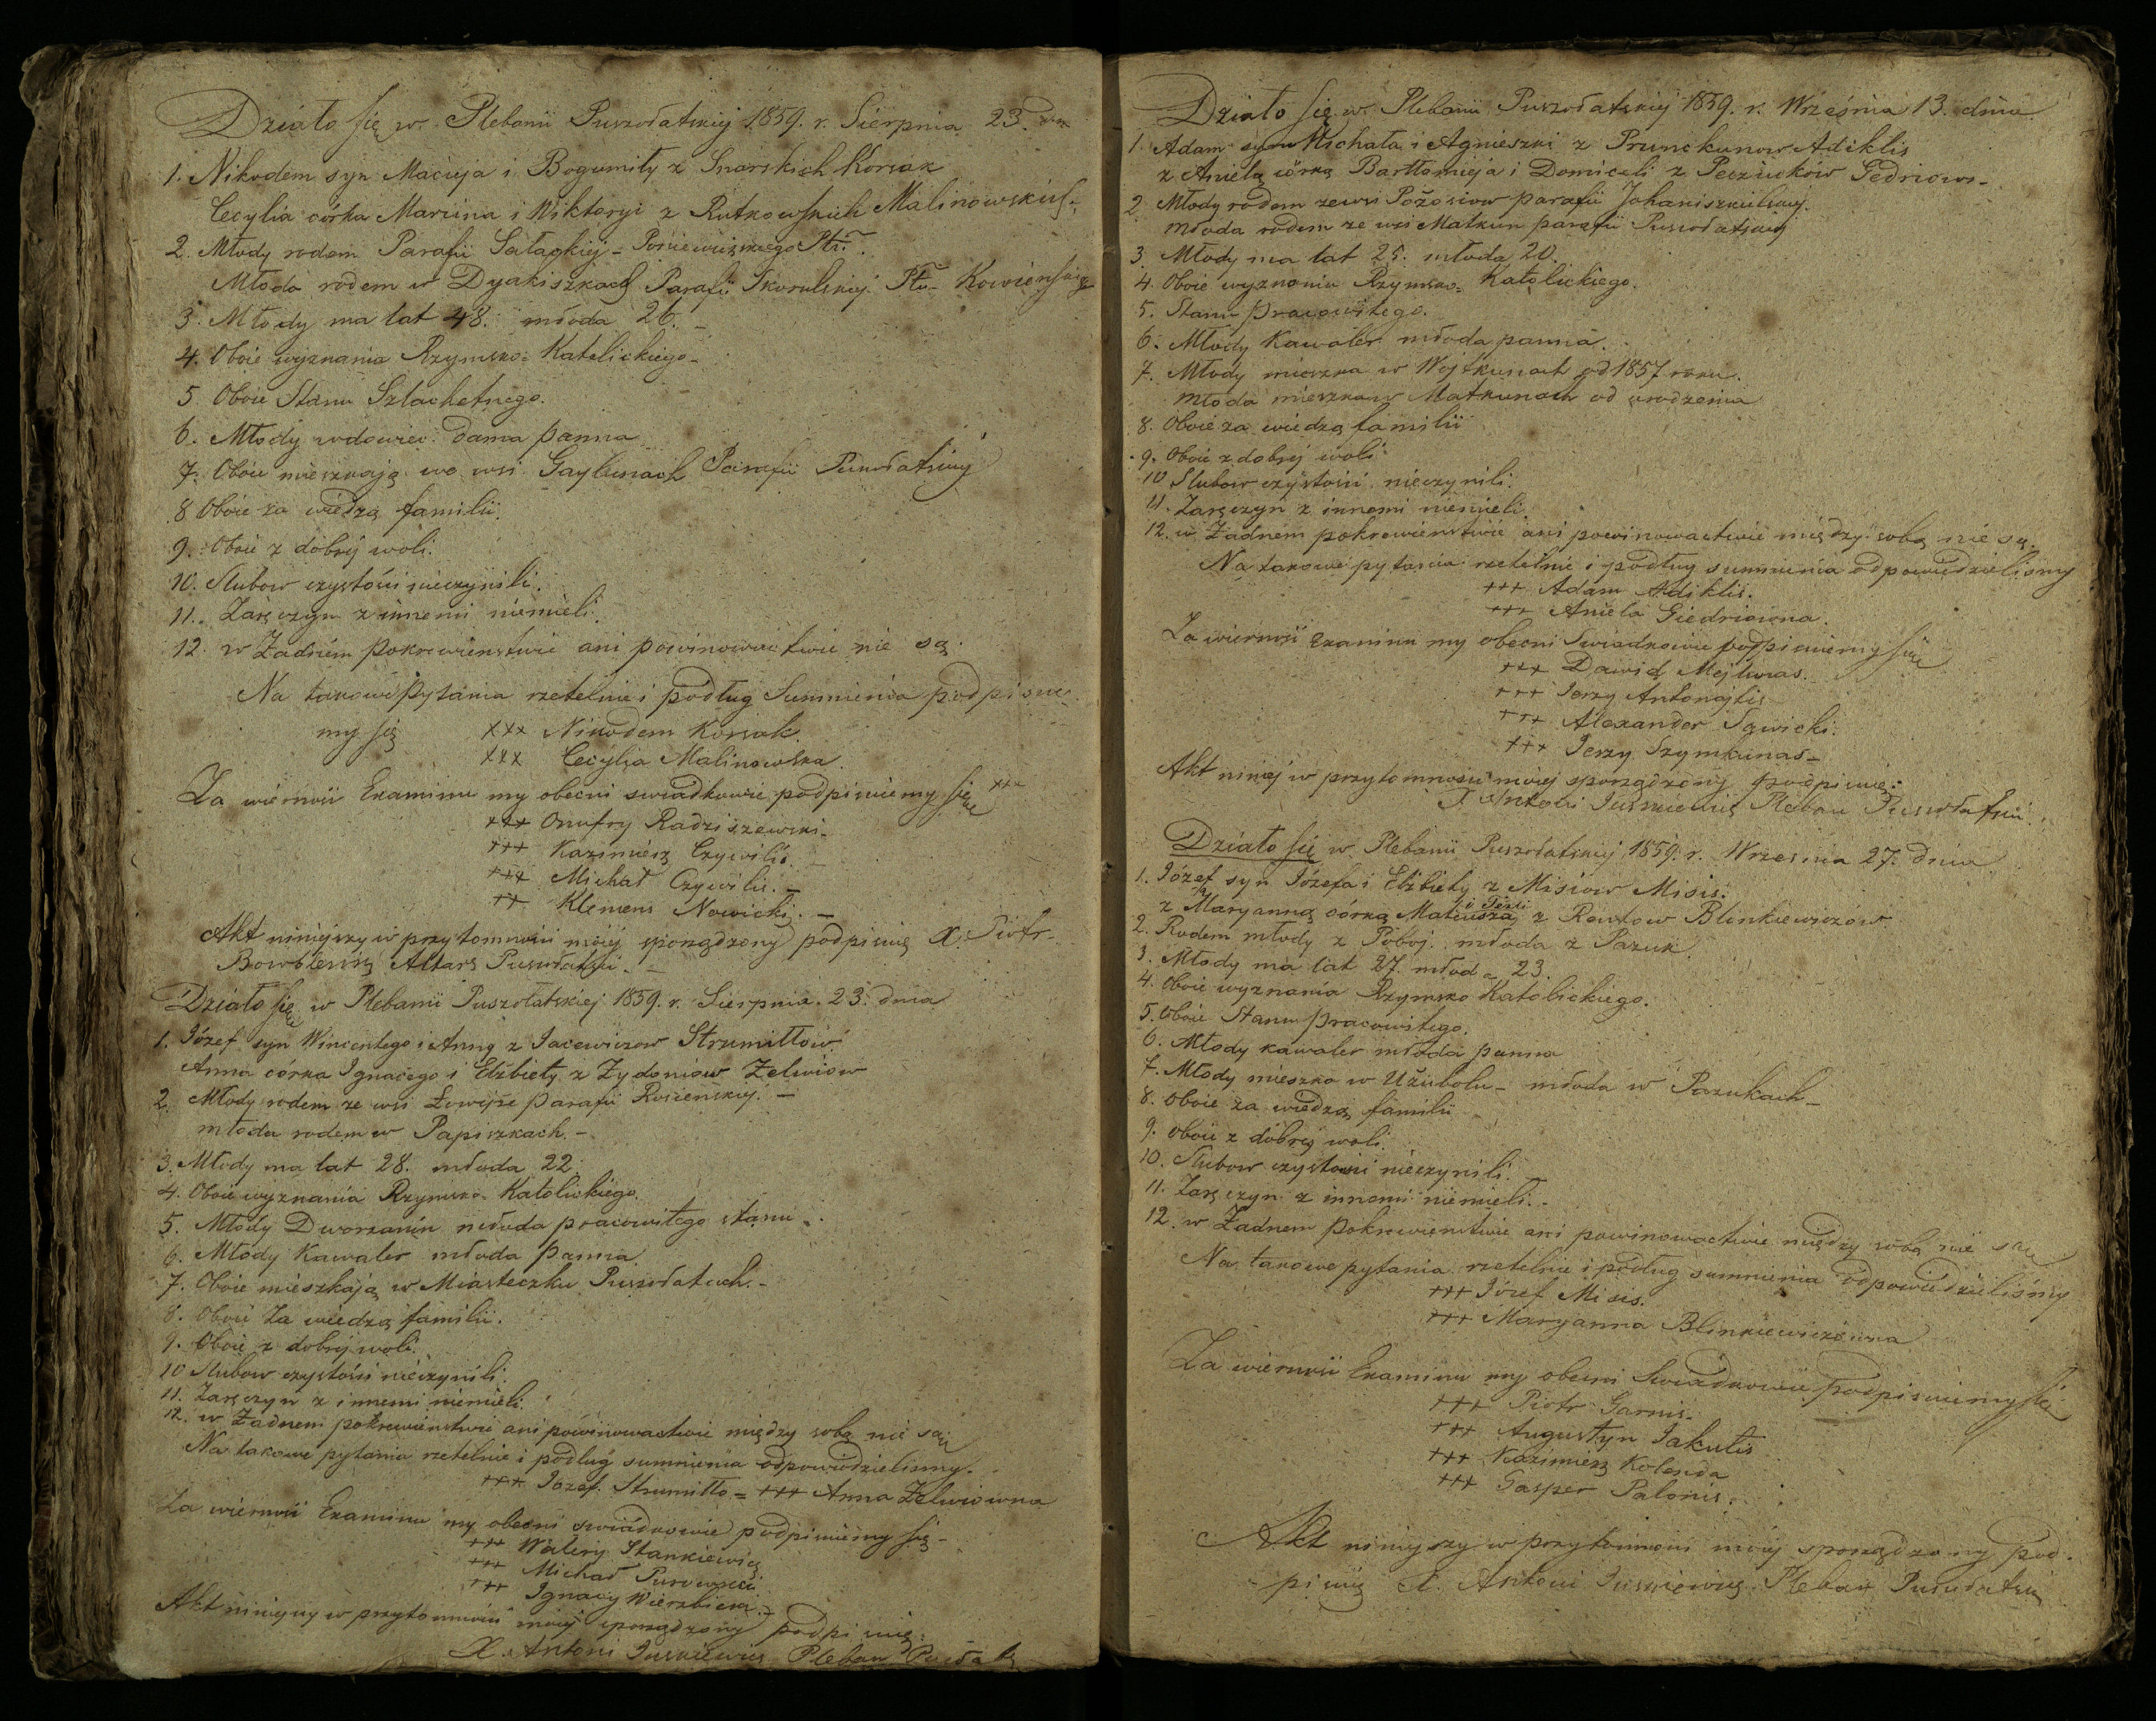 Działo się w Plebanii Puszołatskiej 1859. r. Sierpnia 23. dnia
1. Nikodem syn Macieja i Bogumiły z Snarskich Korsak
Cecylia córka Marcina i Wiktoryi z Rutkowskich Malinowskich
2. Młody rodem Parafii Sałackiej - Poniewieżskiego Ptu.
Młoda rodem w Dyakiszkach Parafii Skorulskiej Ptu- Kowieńskiego
3. Młody ma lat 48. młoda 26.
4. Oboie wyznania Rzymsko-Katolickiego-
5. Oboie Stanu Szlachetnego.
6. Młody wdowiec. dama panna
7. Oboie mieszkają we wsi Gaylunach Parafii Puszołatskiej
8 Oboie za wiedzą familii.
9. Oboie z dobrej woli.
10. Slubow czystości nieczynili.
11. Zaręczyn z innemi niemieli.
12. w Żadném pokrewieństwie ani powinowactwie nie są.
Na takowe pytania rzetelnie i podług Sumnienia podpisue-
my się xxx Nikodem Korsak.
xxx Cecylia Malinowska.
Za wierność Examinu my obecni swiadkowie podpisuiemy się xxx
+++ Onufry Radziszewski-
+++ Kazimiesz Czywilis.
+++ Michał Czywilis. -
++ Klemens Nowicki. -
Akt ninieyszy w przytomności mojej sporządzony podpisuię X. Piotr
Altars Puszołatski. -
Działo się w Plebanii Puszołatskiej 1859. r. Sierpnia. 23. dnia
1. Józef syn Wincentego i Anny z Jacewiczow Strumiłłow
Anna córka Ignacego i Elżbiety z Zydoniow Zelwiow
2. Młody rodem ze wsi parafii Rosieńskiej. -
młoda rodem w Papiszkach. -
3. Młody ma lat 28. młoda 22.
4. Oboie wyznania Rzymsko-Katolickiego.
5. Młody Dworzanin młoda pracowitego stanu.
6. Młody Kawaler młoda panna.
7. Oboie mieszkają w Miasteczku Puszołatach. -
8. Oboie Za wiedzą familii.
9. Oboie z dobrej woli.
10 Slubow czystości nieczynili.
11. Zaręczyn z innemi niemieli.
12. w Żadnem pokrewienstwie ani powinowactwie między sobą nie są
Na takowe pytania rzetelnie i podług sumnienia odpowiedzielismy.
+++ Jozef. Strumiłło = +++ Anna Zelwiowna
Za wierność Examinu my obecni swiádkowie podpisuiemy się -
+++ Walery Stankiewicz
+++ Michał
+++ Ignacy Wierzbicki.
Akt ninieyszy w przytomności mojej sporządzony podpisuię.
X. Antoni Juszkiewicz Pleban
Działo się w Plebanii Puszołatskiej 1859. r. Września 13. dnia
1. Adam syn Michała i Agnieszki z Prunckunow Adiklis
z Anielą córką Bartłomieja i Domiceli z Peczukow Gedriow-
2. Młody rodem ze wsi Pożosiow parafii Johaniszkielskiej.
młoda rodem ze wsi Matkun parafii Puszołatskiej
3. Młody ma lat 25. młoda 20.
4. Oboie wyznania Rzymsko-Katolickiego.
5. Stanu pracowitego.
6. Młody Kawaler młoda panna.
7. Młody mieszka w Wojtkunach od 1857 roku.
młoda mieszka w Matkunach od urodzenia
8. Oboie za wiedzą familii
9. Oboie z dobrej woli
10 Slubow czystości nieczynili.
11. Zaręczyn z innemi niemieli.
12. w Żadném pokrewieństwie ani powinowactwie między sobą nie są.
Na takowe pytania rzetelnie i podług sumnienia odpowiedzielismy
+++ Adam Adiklis.
+++ Aniela Giedriowna.
Za wierność Examinu my obecni Swiadkowie podpisuiemy się
+++ Dawid Mejłunas.
+++ Jerzy Antonajtis
+++ Alexander Sawicki.
+++ Jerzy Szymkunas-
Akt niniej w przytomności mojej sporządzony podpisuię:
X Antoni Juszkiewicz Pleban Puszołatski
Działo się w Plebanii Puszołatskiej 1859. r. Wrzesnia 27. dnia
1. Józef syn Józefa i Elżbiety z Misiow Misis.
z Maryanną córką Mateusza i Tekli z Rowtow Blinkiewiczów
2. Rodem młody z Poboj. młoda z Pazuk.
3. Młody ma lat 27. młoda 23.
4. Oboie wyznania Rzymsko Katolickiego.
5. Oboie Stanu pracowitego.
6. Młody kawaler młoda panna
7. Młody mieszka w Użubolu- młoda w Pazukach-
8. Oboie za wiedzą familii
9. Oboie z dobrej woli.
10. Slubow czystości nieczynili.
11. Zaręczyn z innemi niemieli. -
12. w Żadnem pokrewienstwie ani powinowactwie między sobą nie są
Na takowe pytania rzetelnie i podług sumnienia odpowiedzieliśmy
+++ Józef Misis.
+++ Maryanna Blinkiewiczówna
Za wierność Examinu my obecni Swiadkowie podpisuiemy się
+++ Piotr Garnis-
+++ Augustyn Jakutis
+++ Kazimiesz Kolenda
+++ Gasper Palonis.
Akt ninieyszy w przytomności mojej sporządzony pod-
pisuię X. Antoni Juszkiewicz Pleban Puszołatski